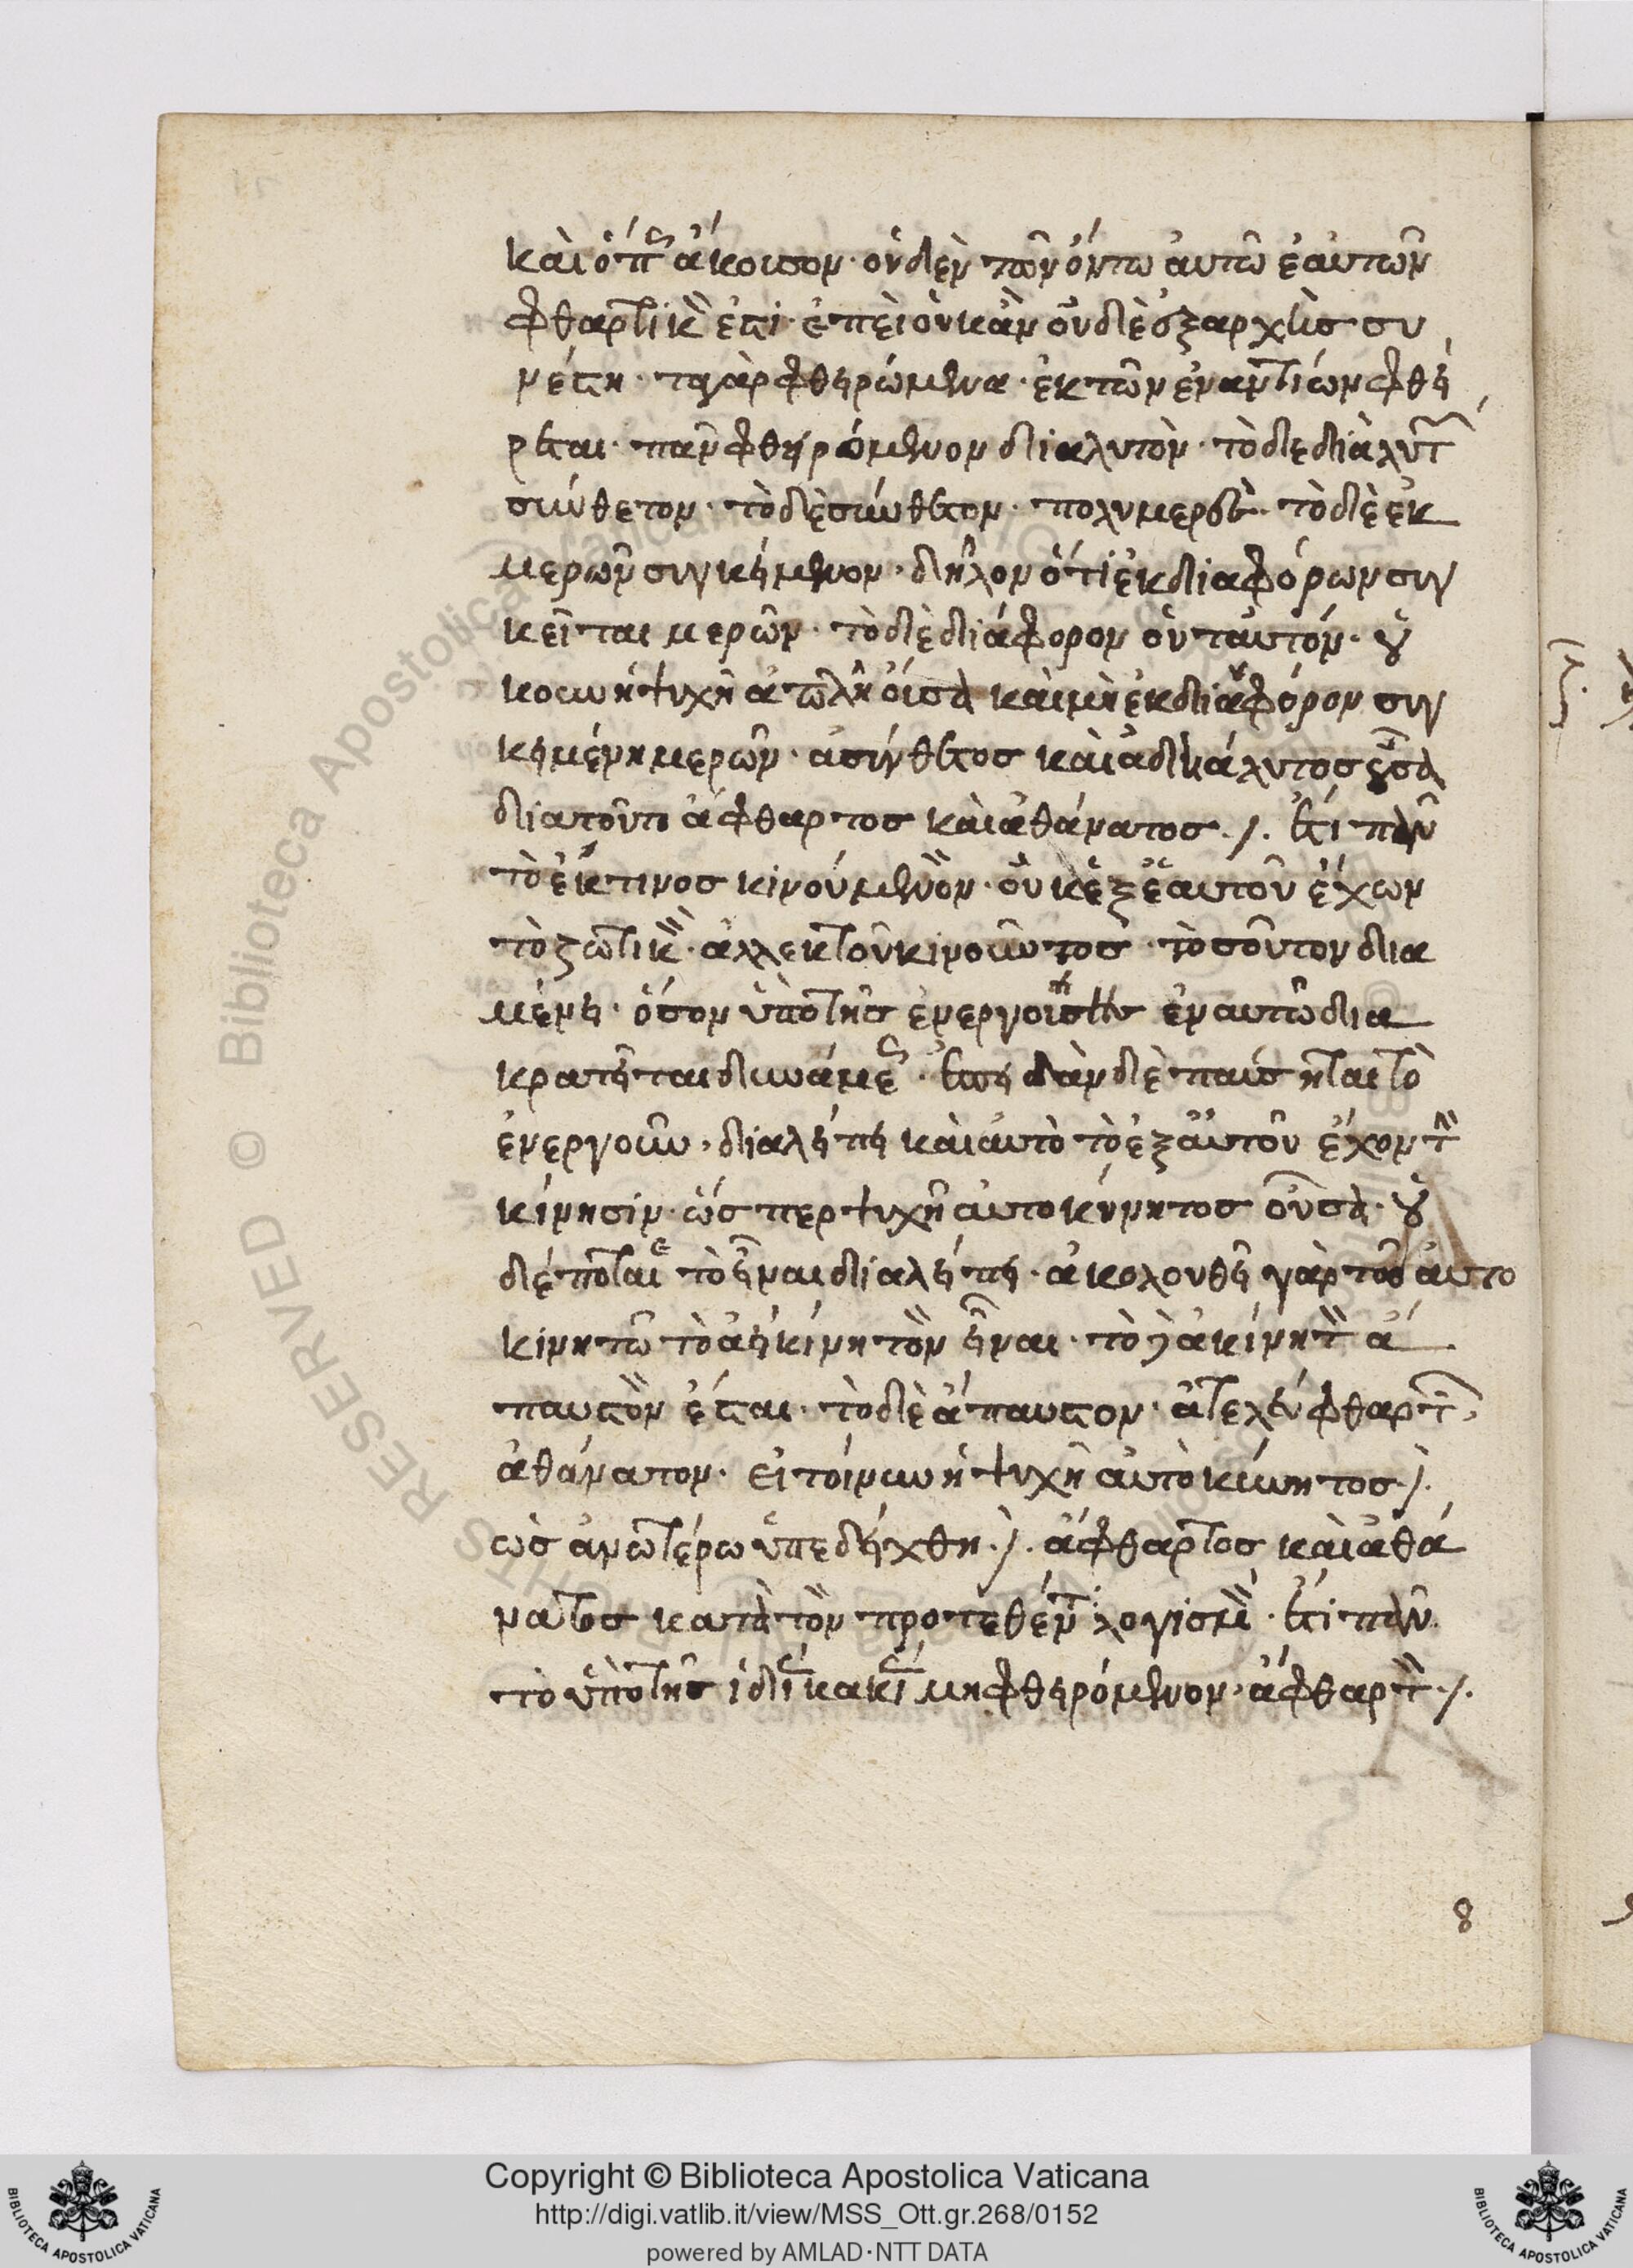 καὶ ὅπως ἄκουσον· οὐδὲν τῶν ὄντω αὐτῶ ἑαυτῶν
φθαρτικὸν ἐστί· ἐπεὶ οὐκ ἂν οὐδὲ ἐξαρχῆς συ
νέστη· τὰ γὰρ φθειρώμενα· ἐκ τῶν ἐναντίων φθεί
ρεται· πᾶν φθειρόμενον διαλυτὸν· τὸ δε διάλυτον
σύνθετον· τὸ δὲ σύνθετον· πολυμερὲς· τὸ δὲ ἐκ
μερῶν συγκείμενον· δῆλον ὅτι ἐκ διαφόρων συγ
κεῖται μερῶν· τὸ δὲ διάφορον οὐ ταυτόν· οὐ
κοῦν ἡ ψυχὴ ἁπλῆ οὖσα καὶ μὴ ἐκ διαφόρον συγ
κειμένη μερῶν· ἀσύνθετος καὶ ἀδιάλυτος οὖσα
διὰ τοῦτο ἄφθαρτος καὶ ἀθάνατος ./. ἔτι πᾶν
τὸ ἔκ τινος κινούμενον· οὐκ ἐξ ἑαυτοῦ ἔχων
τὸ ζωτικὸν· ἀλλ ἐκ τοῦ κινοῦντος· τοσοῦτον δια
μένει· ὅσον ὑπὸ τῆς ἐνεργούσης ἐν αυτῶ δια
κρατεῖται δυνάμεως· ἐπειδὰν δὲ παύσηται τὸ
ἐνεργοῦν· διαλείπει καὶ αὐτὸ τὸ ἐξ αὐτοῦ ἔχον τὴν
κίνησιν· ὥσπερ ψυχὴ αὐτοκίνητος οὖσα· οὐ
δέποται τὸ εἶναι διαλείπει· ἀκολουθεῖ γὰρ τῶ αὐτο
κινητῶ τὸ ἀεικίνητον εἶναι· τὸ γὰρ ἀεικίνητον ἄ
παυστον ἐσται· τὸ δὲ ἄπαυστον· ἀτελεύφθαρτον,
ἀθάνατον· εἰ τοίνυν ἡ ψυχὴ αὐτὸκίνητος ./.
ὡς ἀνωτέρω ὑπεδείχθη ./. ἄφθαρτος καὶ ἀθά
νατος κατὰ τὸν προτεθέντα λογισμὸν· ἔτι πᾶν
τὸ ὑπὸ τῆς ἰδίας κακίας μὴ φθειρόμενον· ἄφθαρτον ./.
8
Copyright © Biblioteca Apostolica Vaticana
http://digi.vatlib.it/view/MSS_Ott.gr.268/0152
powered by AMLAD·NTT DATA